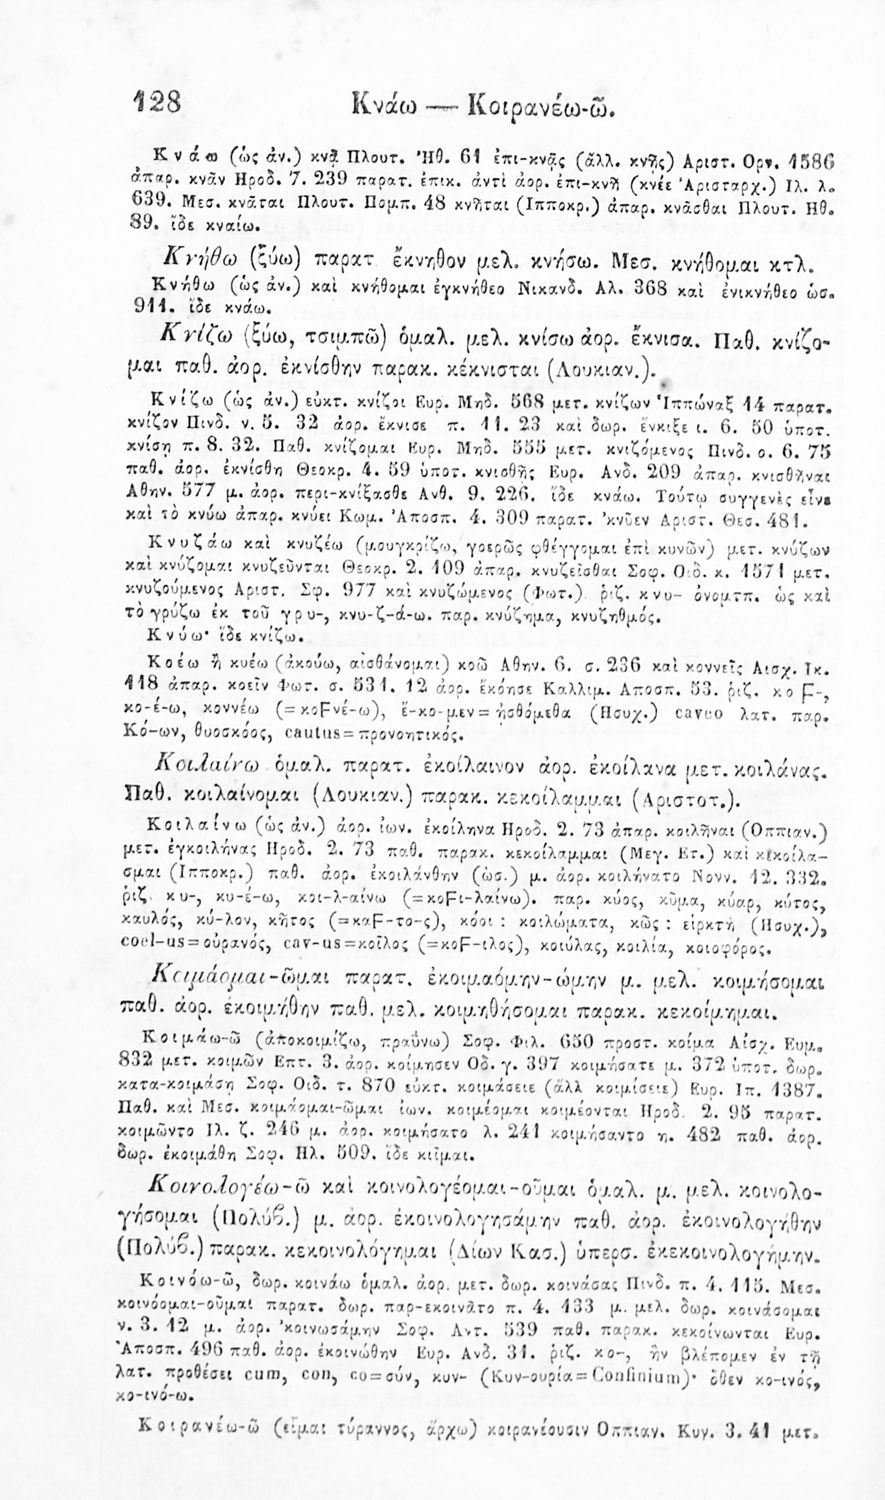 128 Κνάω — Κοιρανέω-ῶ.
Κνάω (ὡς ἀν.) κνᾷ Πλουτ. Ἠθ. 61 ἐπι-κνᾷς (ἄλλ. κνῇς) Αριστ. Ορν. 1586
ἀπαρ. κνᾶν Ηροδ. 7. 239 παρατ. ἐπικ. ἀντὶ ἀορ. ἐπι-κνῆ (κνέε Ἀρισταρχ.) Ιλ. λ.
639. Μεσ. κνᾶται Πλουτ. Πομπ. 48 κνῆται (Ιπποκρ.) ἀπαρ. κνᾶσθαι Πλουτ. Ηθ.
89. ἴδε κναίω.
Κνήθω (ξύω) παρατ ἔκνηθον μελ. κνήσω. Μεσ. κνήθομαι κτλ.
Κνήθω (ὡς ἀν.) καὶ κνήθομαι ἐγκνήθεο Νικανδ. Αλ. 368 καὶ ἐνικνήθεο ὡσ.
911. ἴδε κνάω.
Κνίζω (ξύω, τσιμπῶ) ὁμαλ. μελ. κνίσω ἀορ. ἔκνισα. Παθ. κνίζο-
μαι παθ. ἀορ. ἐκνίσθην παρακ. κέκνισται (Λουκιαν.).
Κνίζω (ὡς ἀν.) εὐκτ. κνίζοι Ευρ. Μηδ. 568 μετ. κνίζων Ἱππώναξ 14 παρατ.
κνίζον Πινδ. ν. 5. 32 ἀορ. ἔκνισε π. 11. 23 καὶ δωρ. ἔνκιξε ι. 6. 50 ὑποτ.
κνίση π. 8. 32. Παθ. κνίζομαι Ευρ. Μηδ. 555 μετ. κνιζόμενος Πινδ. ο. 6. 75
παθ. ἀορ. ἐκνίσθη Θεοκρ. 4. 59 ὑποτ. κνισθῇς Ευρ. Ανδ. 209 ἀπαρ. κνισθῆναι
Αθην. 577 μ. ἀορ. περι-κνίξασθε Ανθ. 9. 226. ἴδε κνάω. Τούτῳ συγγενὲς εἶναι
καὶ τὸ κνύω ἀπαρ. κνύει Κωμ. Ἀποσπ. 4. 309 παρατ. ’κνῦεν Αριστ. Θεσ. 481.
Κνυζάω καὶ κνυζέω (μουγκρίζω, γοερῶς φθέγγομαι ἐπὶ κυνῶν) μετ. κνύζων
καὶ κνύζομαι κνυζεῦνται Θεοκρ. 2. 109 ἀπαρ. κνυζεῖσθαι Σοφ. Οιδ. κ. 1571 μετ.
κνυζούμενος Αριστ. Σφ. 977 καὶ κνυζώμενος (Φωτ.) ῥιζ. κνυ- ὀνομτπ. ὡς καὶ
τὸ γρύζω ἐκ τοῦ γρυ-, κνυ-ζ-ά-ω. παρ. κνύζημα, κνυζηθμός.
Κνύω· ἴδε κνίζω.
Κοέω ἢ κυέω (ἀκούω, αἰσθάνομαι) κοῶ Αθην. 6. σ. 236 καὶ κοννεῖς Αισχ. Ικ.
118 ἀπαρ. κοεῖν Φωτ. σ. 531. 12 ἀορ. ἐκόησε Καλλιμ. Αποσπ. 53. ῥιζ. κοϜ-,
κο-έ-ω, κοννέω (=κοϜνέ-ω), ἔ-κο-μεν=ᾐσθόμεθα (Ησυχ.) caveo λατ. παρ.
Κό-ων, θυοσκόος, cautus=προνοητικός.
Κοιλαίνω ὁμαλ. παρατ. ἐκοίλαινον ἀορ. ἐκοίλανα μετ. κοιλάνας.
Παθ. κοιλαίνομαι (Λουκιαν.) παρακ. κεκοίλαμμαι (Αριστοτ.).
Κοιλαίνω (ὡς ἀν.) ἀορ. ἰων. ἐκοίληνα Ηροδ. 2. 73 ἀπαρ. κοιλῆναι (Οππιαν.)
μετ. ἐγκοιλήνας Ηροδ. 2. 73 παθ. παρακ. κεκοίλαμμαι (Μεγ. Ετ.) καὶ κεκοίλα-
σμαι (Ιπποκρ.) παθ. ἀορ. ἐκοιλάνθην (ὡσ.) μ. ἀορ. κοιλήνατο Νονν. 12. 332.
ῥιζ. κυ-, κυ-έ-ω, κοι-λ-αίνω (=κοϜι-λαίνω). παρ. κύος, κῦμα, κύαρ, κύτος,
καυλός, κύ-λον, κῆτος (=καϜ-το-ς), κόοι : κοιλώματα, κῶς : εἱρκτή (Ησυχ.),
coel-us=οὐρανός, cav-us=κοῖλος (=κοϜ-ιλος), κοιύλας, κοιλία, κοιοφόρος.
Κοιμάομαι-ῶμαι παρατ. ἐκοιμαόμην-ώμην μ. μελ. κοιμήσομαι
παθ. ἀορ. ἐκοιμήθην παθ. μελ. κοιμηθήσομαι παρακ. κεκοίμημαι.
Κοιμάω-ῶ (ἀποκοιμίζω, πραΰνω) Σοφ. Φιλ. 650 προστ. κοίμα Αἰσχ. Ευμ.
832 μετ. κοιμῶν Επτ. 3. ἀορ. κοίμησεν Οδ. γ. 397 κοιμήσατε μ. 372 ὑποτ. δωρ.
κατα-κοιμάσῃ Σοφ. Οιδ. τ. 870 εὐκτ. κοιμάσειε (ἀλλ κοιμίσειε) Ευρ. Ιπ. 1387.
Παθ. καὶ Μεσ. κοιμάομαι-ῶμαι ἰων. κοιμέομαι κοιμέονται Ηροδ. 2. 95 παρατ.
κοιμῶντο Ιλ. ζ. 246 μ. ἀορ. κοιμήσατο λ. 241 κοιμήσαντο η. 482 παθ. ἀορ.
δωρ. ἐκοιμάθη Σοφ. Ηλ. 509. ἴδε κεῖμαι.
Κοινολογέω-ῶ καὶ κοινολογέομαι-οῦμαι ὁμαλ. μ. μελ. κοινολο-
γήσομαι (Πολύβ.) μ. ἀορ. ἐκοινολογησάμην παθ. ἀορ. ἐκοινολογήθην
(Πολύβ.) παρακ. κεκοινολόγημαι (Δίων Κασ.) ὑπερσ. ἐκεκοινολογήμην.
Κοινόω-ῶ, δωρ. κοινάω ὁμαλ. ἀορ. μετ. δωρ. κοινάσας Πινδ. π. 4. 115. Μεσ.
κοινόομαι-οῦμαι παρατ. δωρ. παρ-εκοινᾶτο π. 4. 133 μ. μελ. δωρ. κοινάσομαι
ν. 3. 12 μ. ἀορ. ’κοινωσάμην Σοφ. Αντ. 539 παθ. παρακ. κεκοίνωνται Ευρ.
Ἀποσπ. 496 παθ. ἀορ. ἐκοινώθην Ευρ. Ανδ. 31. ῥιζ. κο-, ἣν βλέπομεν ἐν τῇ
λατ. προθέσει cum, con, co=σύν, κυν- (Κυν-ουρία=Confinium)· ὅθεν κο-ινός,
κο-ινό-ω.
Κοιρανέω-ῶ (εἶμαι τύραννος, ἄρχω) κοιρανέουσιν Οππιαν. Κυγ. 3. 41 μετ.